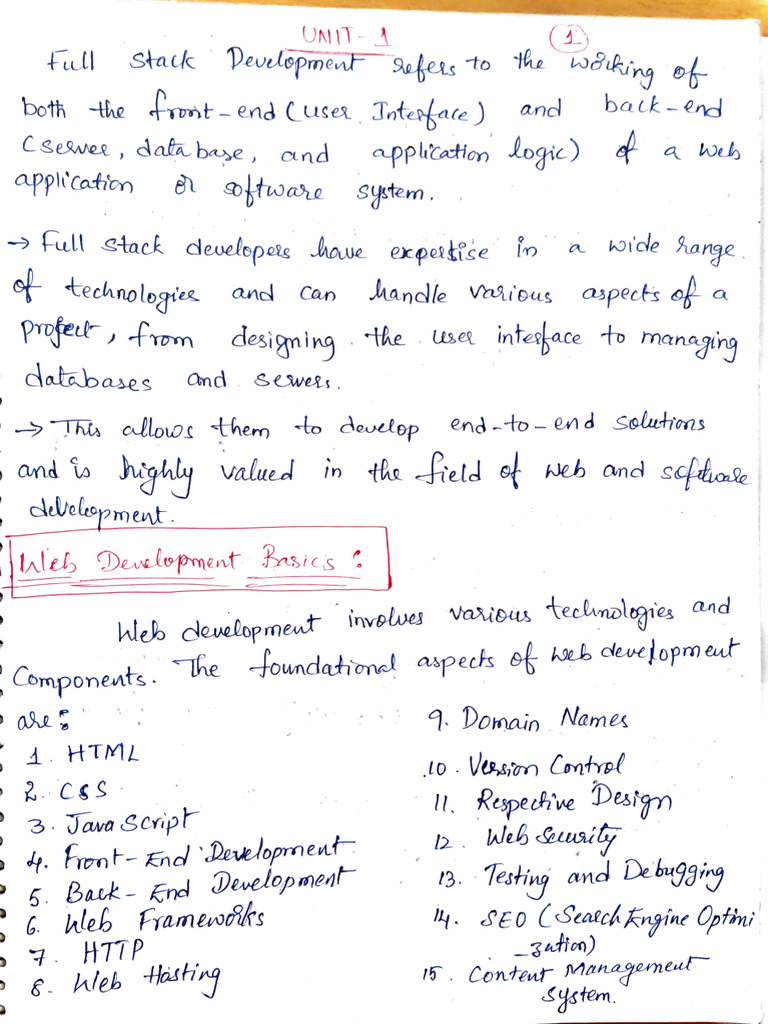 UNIT-1
1
Full Stack Development refers to the working of
both the front-end (User Interface) and back-end
(server, database, and application logic) of a web
application or software system.
→ Full stack developers have expertise in a wide range
of technologies and can handle various aspects of a
project, from designing the user interface to managing
databases and servers.
→ This allows them to develop end-to-end solutions
and is highly valued in the field of web and software
development.
Web Development Basics:
Web development involves various technologies and
Components. The foundational aspects of web development
are:
1. HTML
2. CSS
3. JavaScript
4. Front-End Development
5. Back-End Development
6. Web Frameworks
7. HTTP
8. Web Hosting
9. Domain Names
10. Version Control
11. Respective Design
12. Web Security
13. Testing and Debugging
14. SEO (Search Engine Optimi
-zation)
15. Content Management
System.